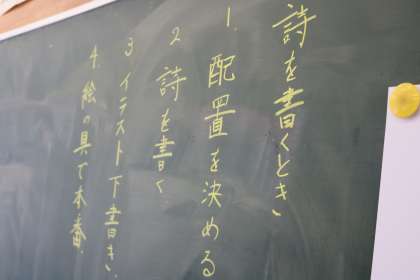 詩を書くとき、
1. 配置を決める
2. 詩を書く
3 イラスト下書き.
4. 絵の具で本番.